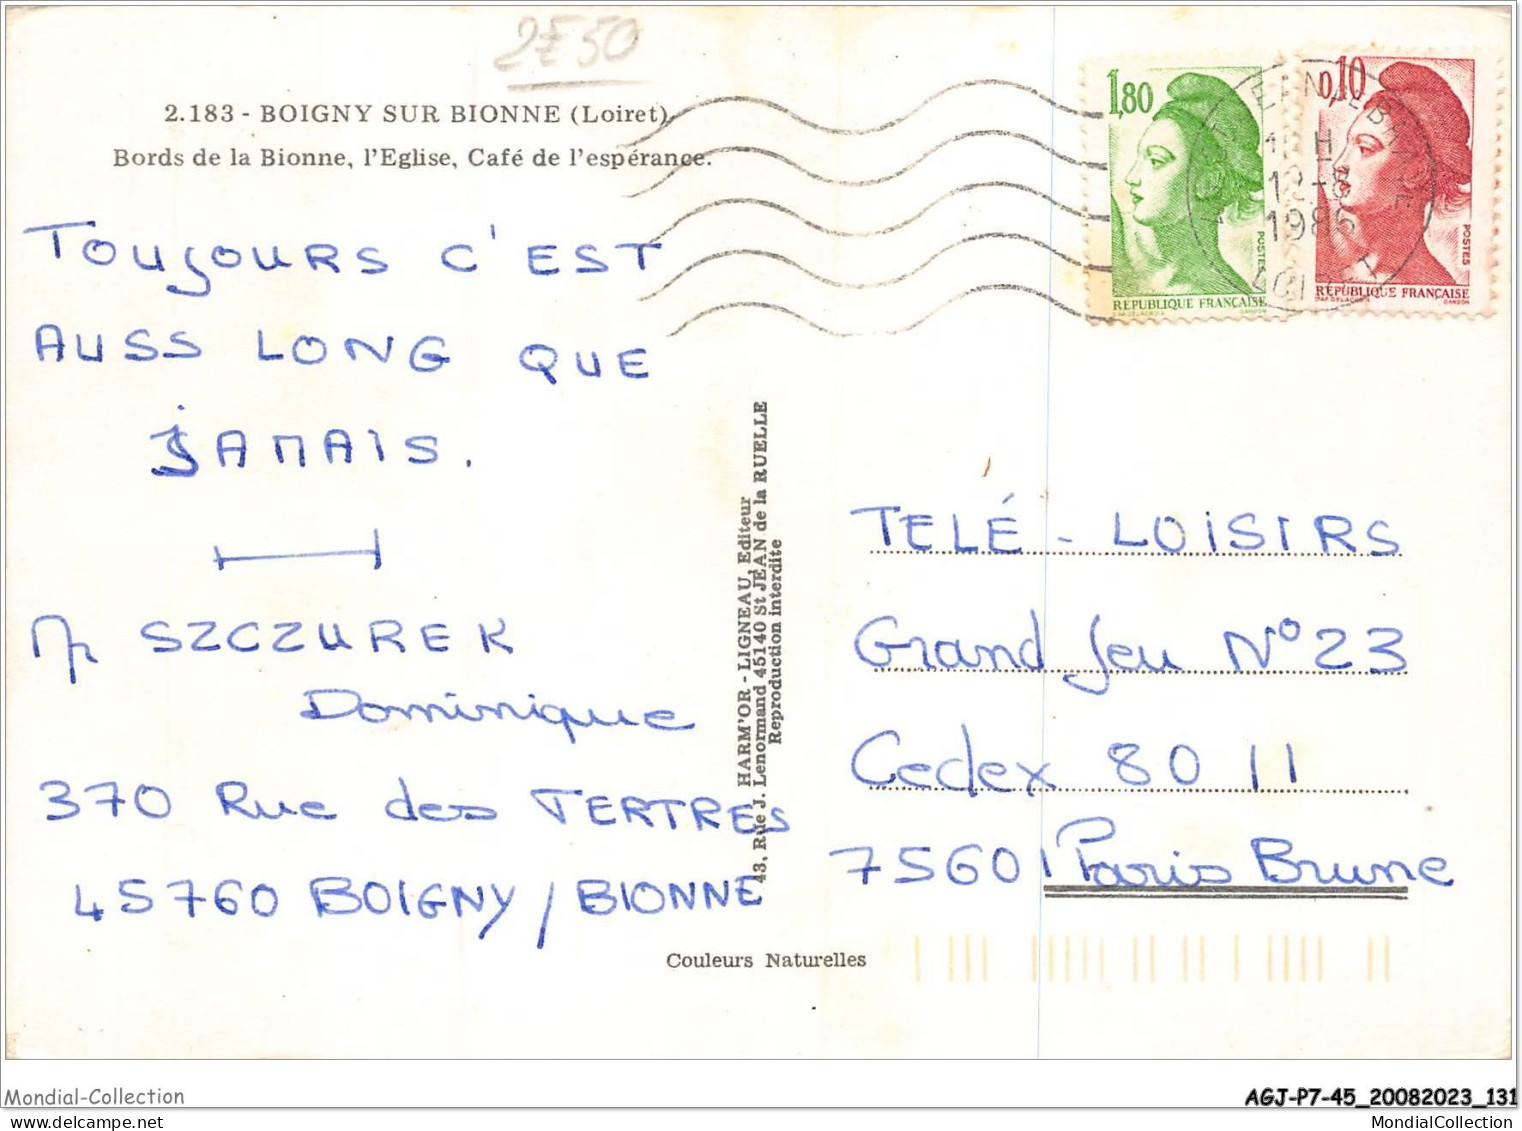 2F50
2.183 - BOIGNY SUR BIONNE (Loiret)
Bords de la Bionne, l'Eglise, Café de l'espérance.
TOUJOURS C'EST
AUSS LONG QUE
JAMAIS.
Mr SZCZUREK
Dominique
370 Rue des TERTRES
45760 BOIGNY / BIONNE
HARM'OR - LIGNEAU, Editeur
43, Rue J. Lenormand 45140 St JEAN de la RUELLE
Reproduction interdite
Couleurs Naturelles
1,80
POSTES
RÉPUBLIQUE FRANÇAISE
D'AP. DELACROIX GANDON
0,10
POSTES
RÉPUBLIQUE FRANÇAISE
D'AP. DELACROIX GANDON
H
12-8
1986
LOIRET
TELÉ - LOISIRS
Grand Jeu N° 23
Cedex 80 11
75601 Paris Brune
Mondial-Collection
AGJ-P7-45_20082023_131
MondialCollection